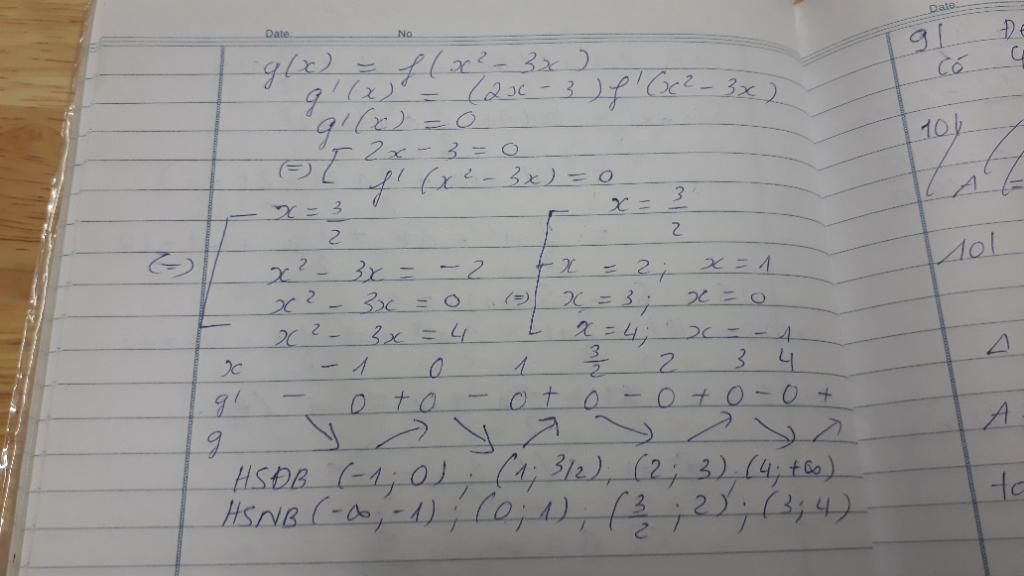 Date No
g(x) = f(x² - 3x)
g'(x) = (2x - 3) f'(x² - 3x)
g'(x) = 0
(=) [ 2x - 3 = 0
f'(x² - 3x) = 0
(=) [ x = 3/2
x² - 3x = -2
x² - 3x = 0
x² - 3x = 4
(=) [ x = 3/2
x = 2; x = 1
x = 3; x = 0
x = 4; x = -1
x -1 0 1 3/2 2 3 4
g' - 0 + 0 - 0 + 0 - 0 + 0 - 0 +
g ↘ ↗ ↘ ↗ ↘ ↗ ↘ ↗
HSĐB (-1; 0); (1; 3/2), (2; 3), (4; +∞)
HSNB (-∞; -1); (0; 1), (3/2; 2); (3; 4)
Date
9|
Có
10|
A
10|
Δ
A